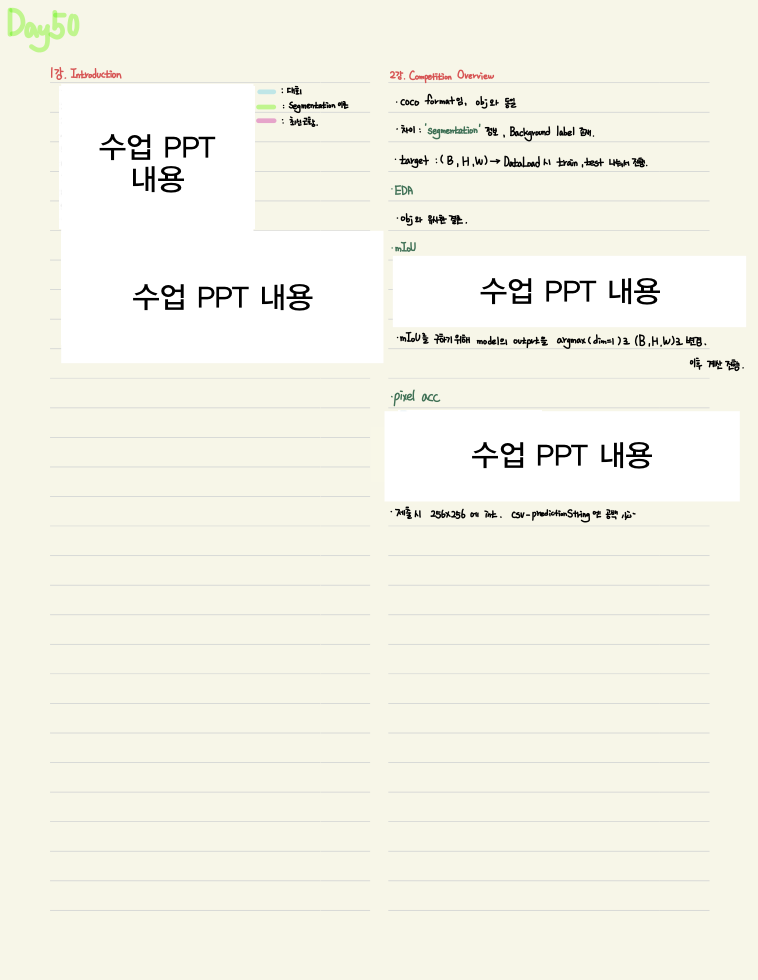 Day50
1강. Introduction
: 대회
: Segmentation 이론
: 최신 근황.
수업 PPT
내용
수업 PPT 내용
2강. Competition Overview
· coco format임, obj와 동일
· 차이 : 'segmentation' 정보, Background label 존재.
· target : (B, H, W) → DataLoad 시 train, test 나눠서 진행.
· EDA
· obj와 유사한 결론.
· mIoU
수업 PPT 내용
· mIoU를 구하기 위해 model의 output을 argmax(dim=1)로 (B, H, W)로 변경.
이후 계산 진행.
· pixel acc
수업 PPT 내용
· 제출 시 256x256 에 csv-predictionString 엔 공백